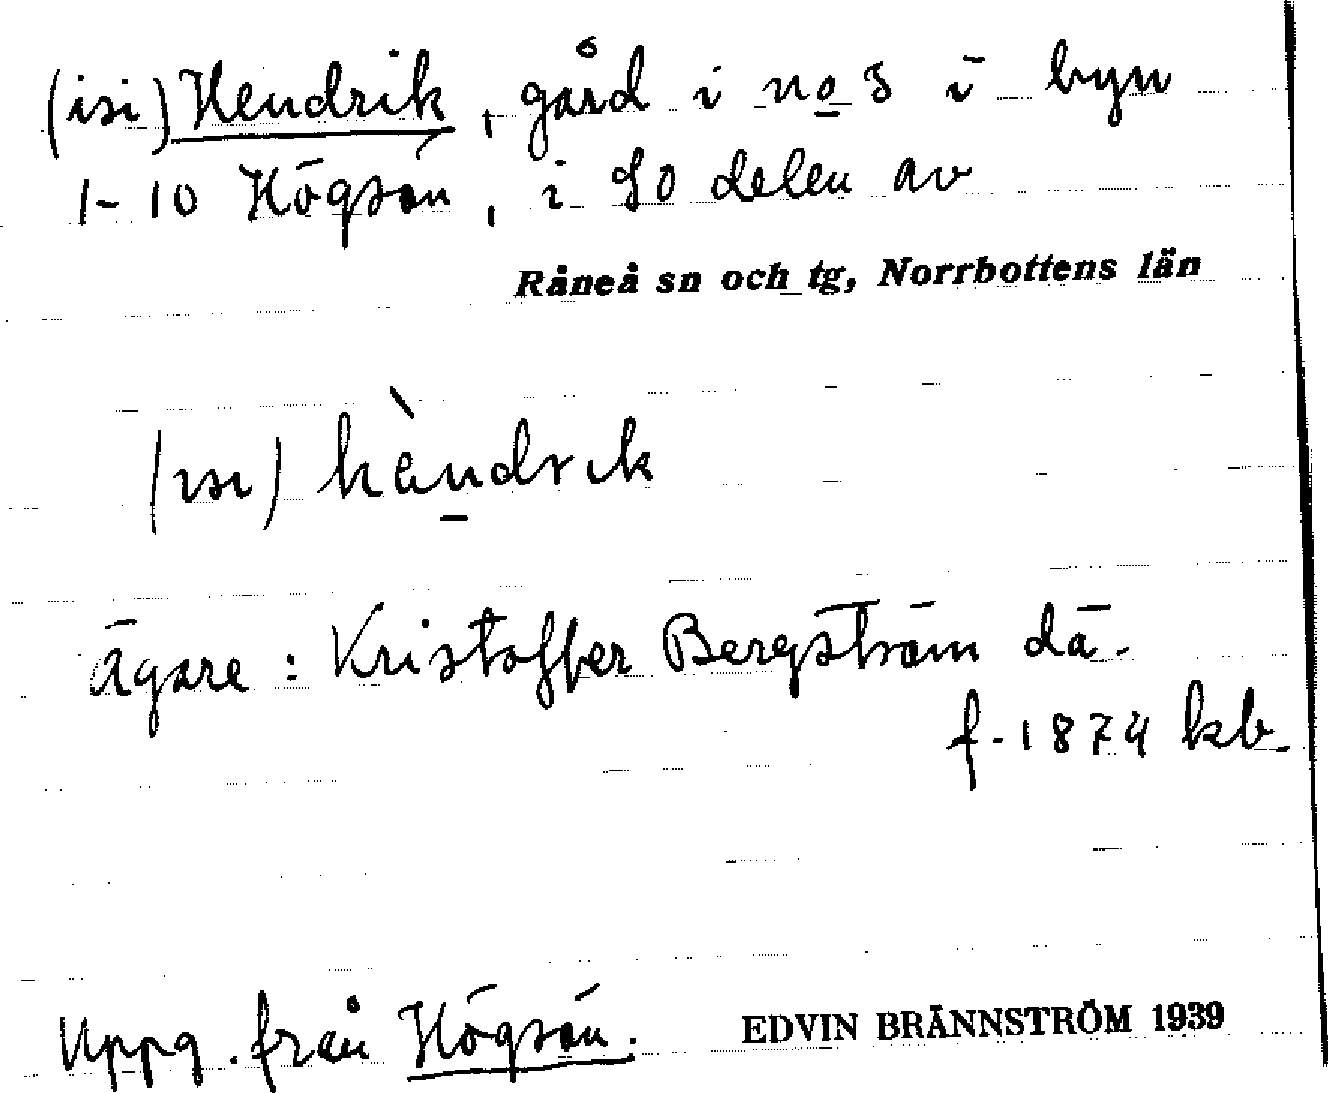 (isi) Hendrik, gård i no 3 i byn
1-10 Högsön, i SO delen av
Råneå sn och tg, Norrbottens län
(ısı) hàndrık
Ägare: Kristoffer Bergström dä.
f. 1874 kb.
Uppg. från Högsön.
EDVIN BRÄNNSTRÖM 1939